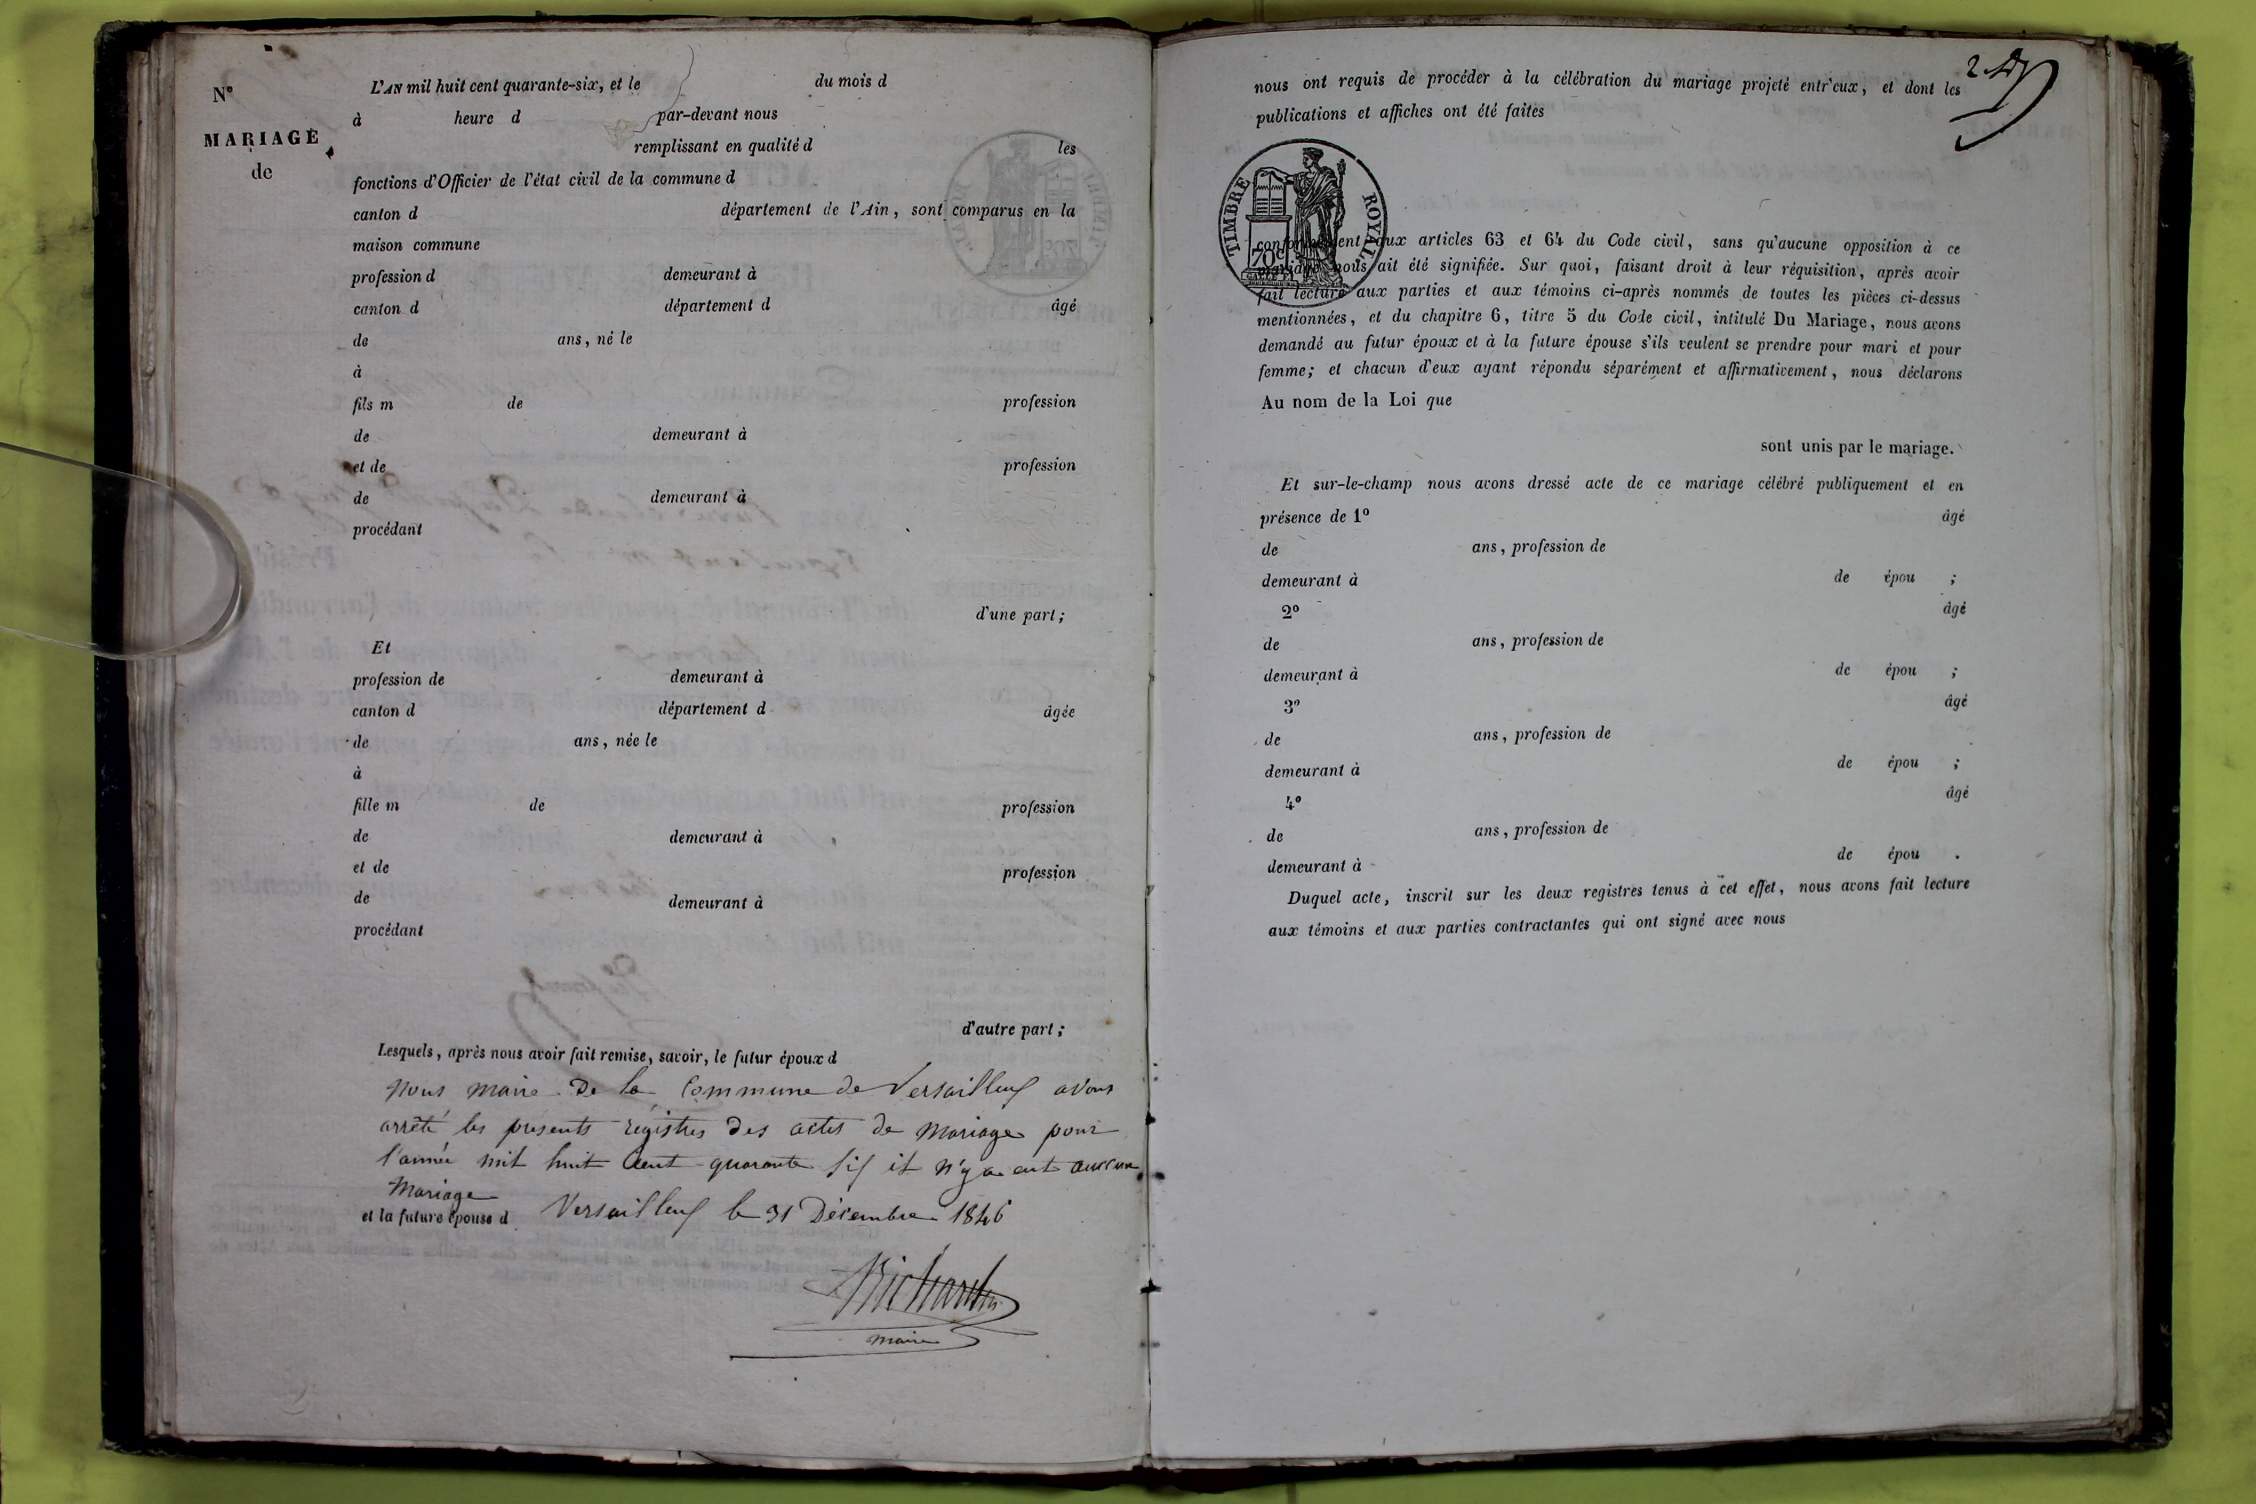 N°
MARIAGE
de
L'AN mil huit cent quarante-six, et le du mois d
à heure d par-devant nous
remplissant en qualité d les
fonctions d'Officier de l'état civil de la commune d
canton d département de l'Ain, sont comparus en la
maison commune
profession d demeurant à
canton d département d âgé
de ans, né le
à
fils m de profession
de demeurant à
et de profession
de demeurant à
procédant
d'une part;
Et
profession de demeurant à
canton d département d âgée
de ans, née le
à
fille m de profession
de demeurant à
et de profession
de demeurant à
procédant
d'autre part;
Lesquels, après nous avoir fait remise, savoir, le futur époux d
Nous Maire De la Commune de Versailleux avons
arrêté les présents régistres des actes de Mariage pour
l'année mil huit Cent quarante six il n'y a eut aucun
Mariage
et la future épouse d Versailleux le 31 Décembre 1846
Maire
2
nous ont requis de procéder à la célébration du mariage projeté entr'eux, et dont les
publications et affiches ont été faites
TIMBRE ROYAL
70c
conformément aux articles 63 et 64 du Code civil, sans qu'aucune opposition à ce
mariage nous ait été signifiée. Sur quoi, faisant droit à leur réquisition, après avoir
fait lecture aux parties et aux témoins ci-après nommés de toutes les pièces ci-dessus
mentionnées, et du chapitre 6, titre 5 du Code civil, intitulé Du Mariage, nous avons
demandé au futur époux et à la future épouse s'ils veulent se prendre pour mari et pour
femme; et chacun d'eux ayant répondu séparément et affirmativement, nous déclarons
Au nom de la Loi que
sont unis par le mariage.
Et sur-le-champ nous avons dressé acte de ce mariage célébré publiquement et en
présence de 1° âgé
de ans, profession de
demeurant à de épou ;
2° âgé
de ans, profession de
demeurant à de épou ;
3° âgé
de ans, profession de
demeurant à de épou ;
4° âgé
de ans, profession de
demeurant à de épou .
Duquel acte, inscrit sur les deux registres tenus à cet effet, nous avons fait lecture
aux témoins et aux parties contractantes qui ont signé avec nous